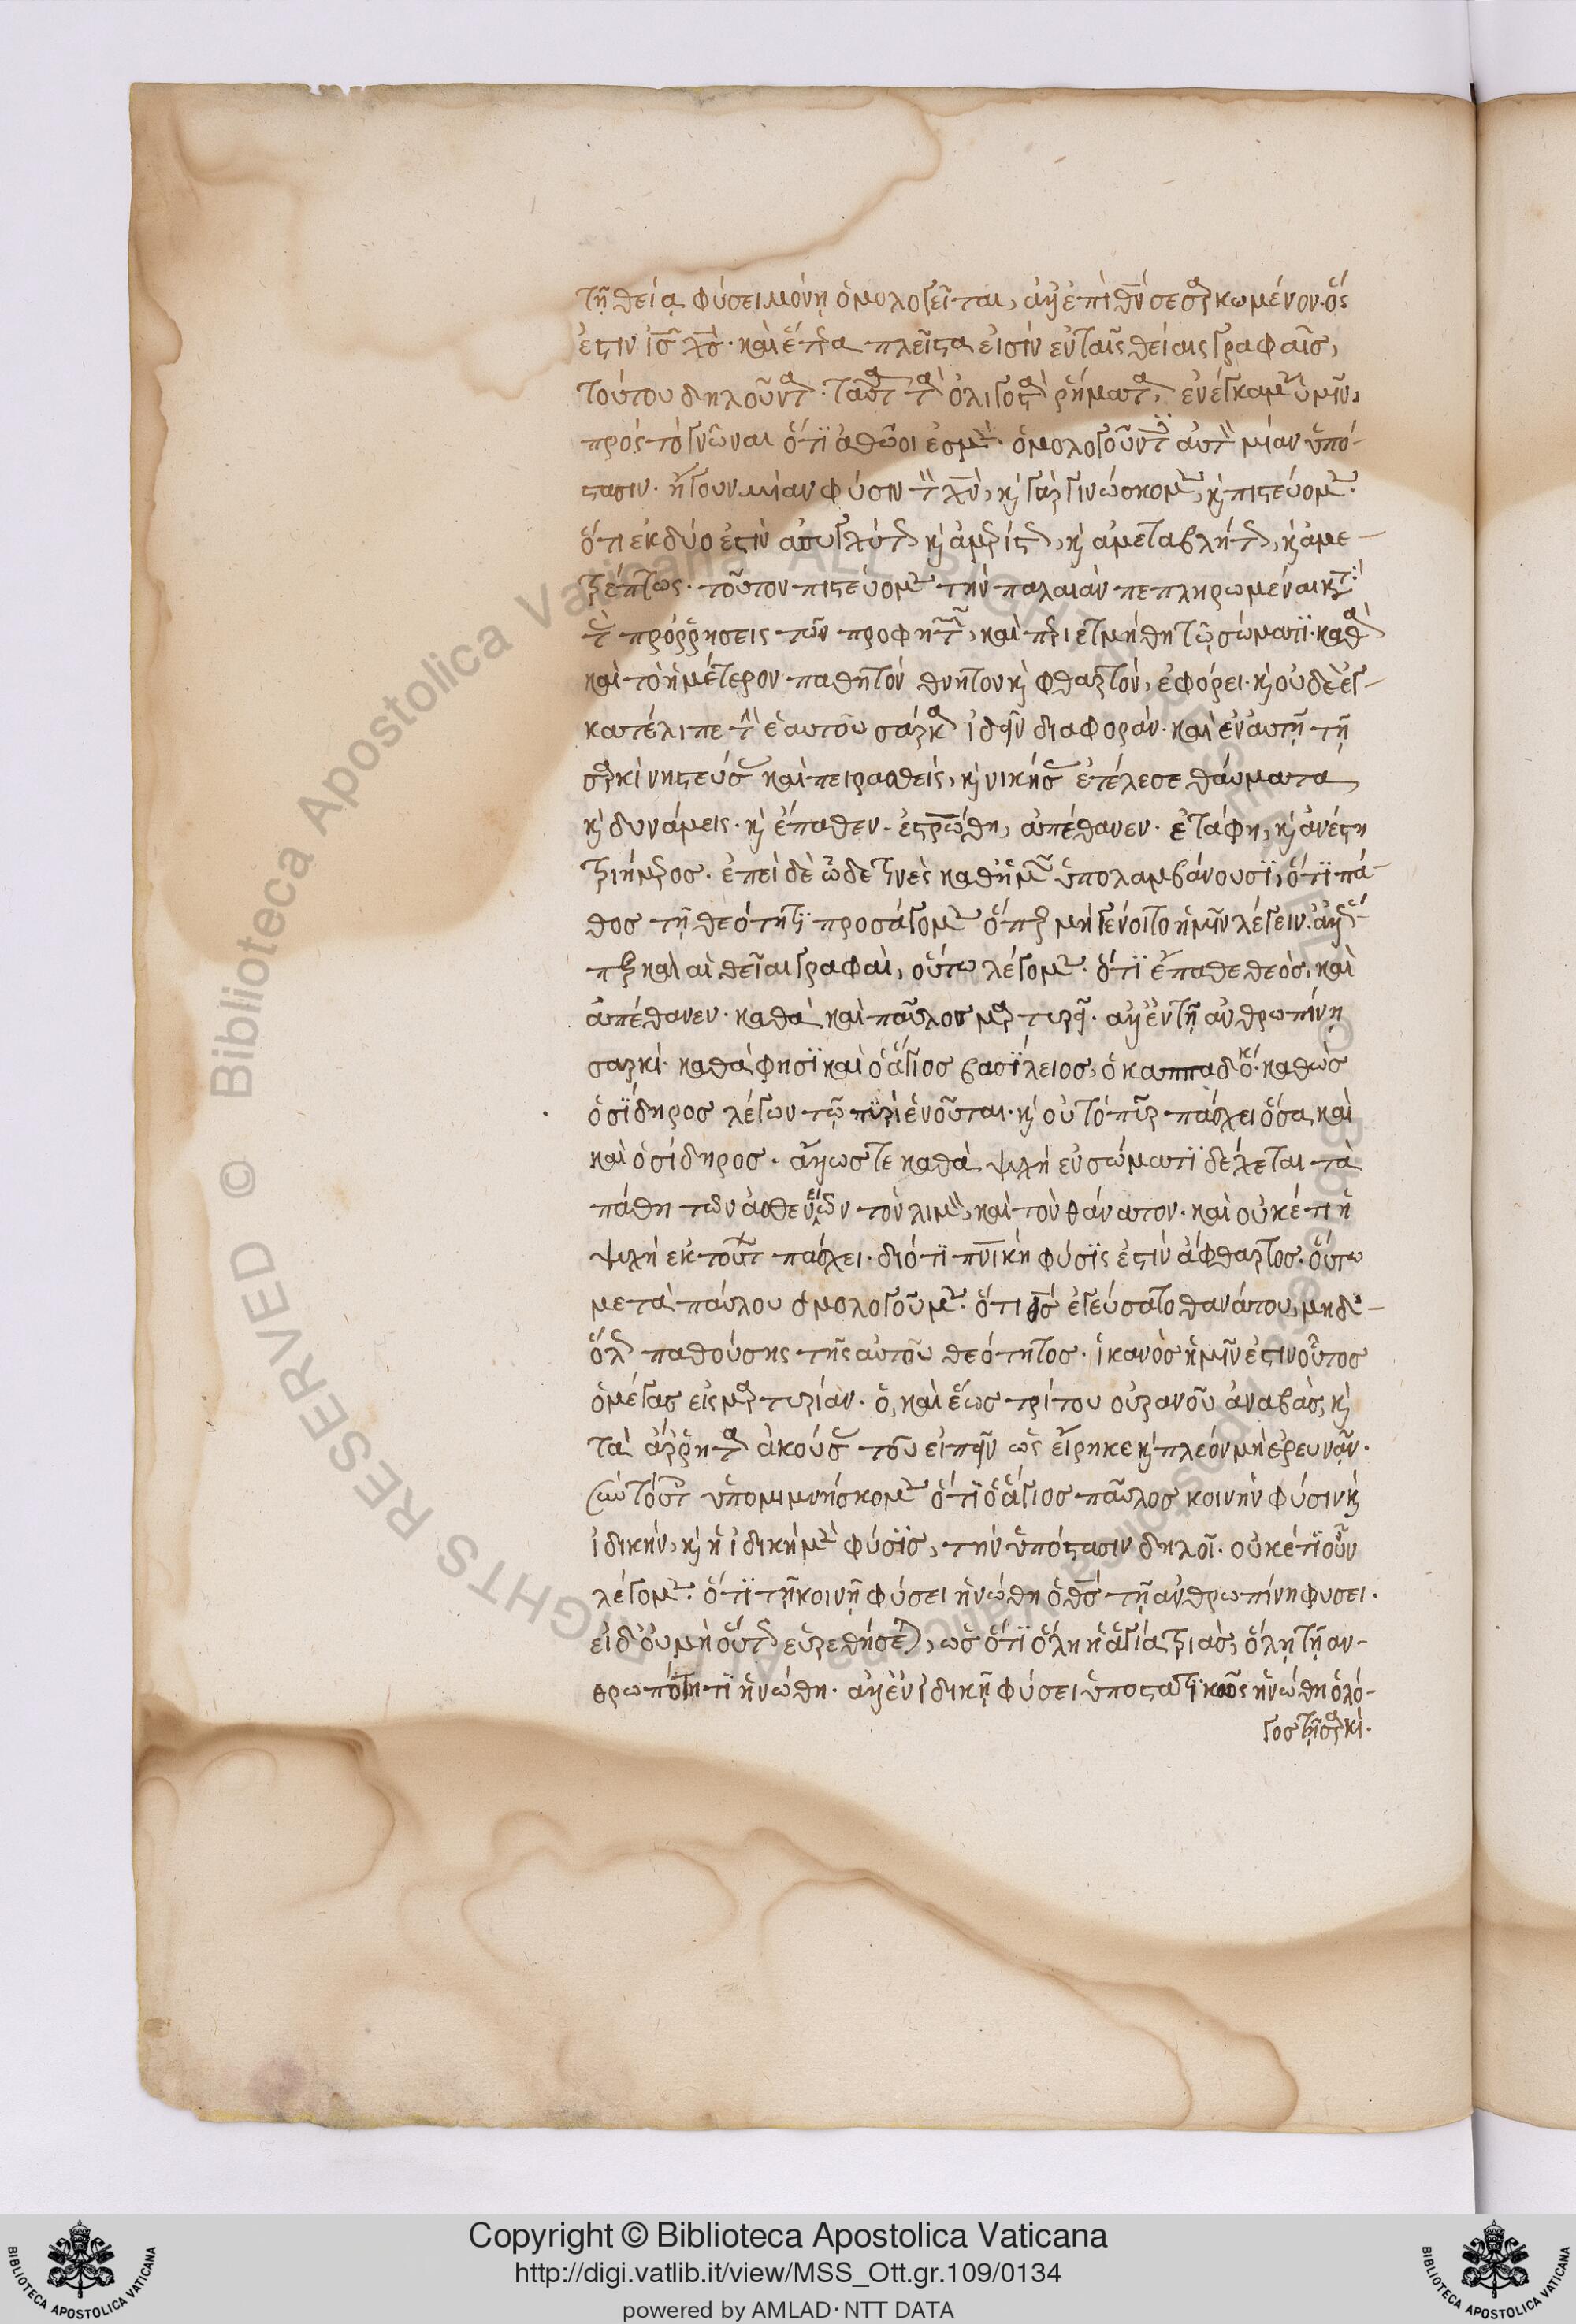 τῇ θείᾳ φύσει μόνῃ ὁμολογεῖται, ἀλλ' ἐπὶ θν σεσαρκωμένον. ὅς
ἐστιν ἰς χς. καὶ ἕτερα πλεῖστα εἰσὶν ἐν ταῖς θείαις γραφαῖσ,
τούτου δηλοῦντα. ταῦτα τὰ ὀλιγοστὰ ῥήματα, ἐνέγκαμεν ὑμῖν,
πρὸς τὸ γνῶναι ὅτι ἀθῶοι ἐσμὲν. ὁμολογοῦντες αὐτὸν μίαν ὑπό-
στασιν. ἤγουν μίαν φύσιν τὸν χν, καὶ γὰρ γινώσκομεν, καὶ πιστεύομεν.
ὅτι ἐκ δύο ἐστὶν ἀσυγχύτως καὶ ἀμερίστως, καὶ ἀμεταβλήτως, καὶ ἀμε-
τρέπτως. τοῦτον πιστεύομεν τὴν παλαιὰν πεπληρωμέναι κατὰ
τὰς προῤῥήσεις τῶν προφητῶν, καὶ περιετμήθη τῷ σώματι. καθὰ
καὶ τὸ ἡμέτερον παθητὸν θνητὸν καὶ φθαρτὸν, ἐφόρει. καὶ οὐδὲ ἐγ-
κατέλιπε τὴν ἑαυτοῦ σάρκα ἰδεῖν διαφορὰν. καὶ ἐν αὐτῇ τῇ
σαρκὶ νηστεύσας καὶ πειρασθεὶς, καὶ νικήσας ἐτέλεσε θαύματα
καὶ δυνάμεις. καὶ ἔπαθεν. ἐστρώθη, ἀπέθανεν. ἐτάφη, καὶ ἀνέστη
τριήμερος. ἐπεὶ δὲ ὧδε τινὲς καθ' ἡμῶν ὑπολαμβάνουσι, ὅτι πά-
θος τῇ θεότητι προσάγομεν ὅπερ μὴ γένοιτο ἡμῖν λέγειν. ἀλλ' ὅ-
περ καὶ αἱ θεῖαι γραφαὶ, οὕτω λέγομεν. ὅτι ἔπαθε θεὸς, καὶ
ἀπέθανεν. καθὰ καὶ παῦλος μαρτυρεῖ. ἀλλ' ἐν τῇ ἀνθρωπίνῃ
σαρκὶ. καθά φησι καὶ ὁ ἅγιος βασίλειος, ὁ καππαδόκ. καθὼς
ὁ σίδηρος λέγων τῷ πυρὶ ἑνοῦται. καὶ οὐ τὸ πῦρ πάσχει ὅσα καὶ
καὶ ὁ σίδηρος. ἄλλωστε καθὰ ψυχὴ ἐν σώματι δέχεται τὰ
πάθη τῶν ἀσθενειῶν τὸν λιμὸν, καὶ τὸν θάνατον. καὶ οὐκέτι ἡ
ψυχὴ ἐκ τούτων πάσχει. διότι πνικὴ φύσις ἐστὶν ἄφθαρτος. οὕτω
μετὰ παύλου ὁμολογοῦμεν. ὅτι ἐγεύσατο θανάτου, μηδὲ-
ὅλως παθούσης τῆς αὐτοῦ θεότητος. ἱκανὸς ἡμῖν ἐστιν οὗτος
ὁ μέγας εἰς μαρτυρίαν. ὁ, καὶ ἕως τρίτου οὐρανοῦ ἀναβὰς, καὶ
τὰ ἄῤῥητα ἀκούσας τοῦ εἰπεῖν ὡς εἴρηκε καὶ πλέον μὴ ἐρευνᾶν.
ὑπομιμνήσκομεν ὅτι ὁ ἅγιος παῦλος κοινὴν φύσιν καὶ
ἰδικὴν, καὶ ἡ ἰδικὴ μὲν φύσις, τὴν ὑπόστασιν δηλοῖ. οὐκέτι οὖν
λέγομεν. ὅτι τῇ κοινῇ φύσει ἡνώθη ὁ θς τῇ ἀνθρωπίνη φυσει.
εἰ δ' οὐ μὴ οὕτως εὑρεθήσεται, ὡς ὅτι ὅλη ἡ ἁγία τριὰς, ὅλῃ τῇ αν-
θρωπότητι ἡνώθη. ἀλλ' ἐν ἰδικῇ φύσει ὑποστατικῶς ἡνώθη ὁ λό-
γος τῇ σαρκὶ.
Copyright © Biblioteca Apostolica Vaticana
http://digi.vatlib.it/view/MSS_Ott.gr.109/0134
powered by AMLAD·NTT DATA